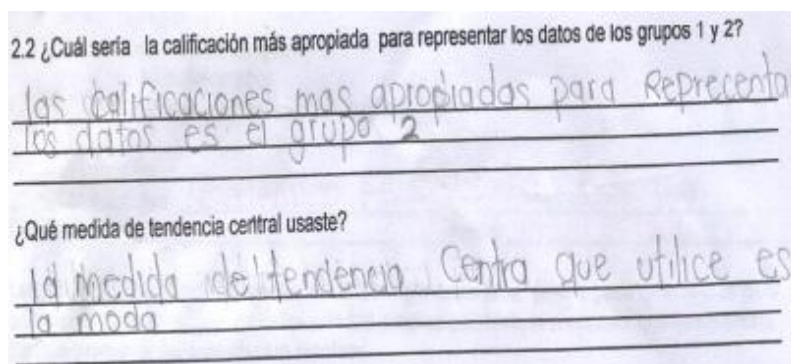 2.2 ¿Cuál sería la calificación más apropiada para representar los datos de los grupos 1 y 2?
las calificaciones mas apropiadas para Reprecenta
los datos es el grupo 2
¿Qué medida de tendencia central usaste?
la medida de tendencia Centra que utilice es
la moda